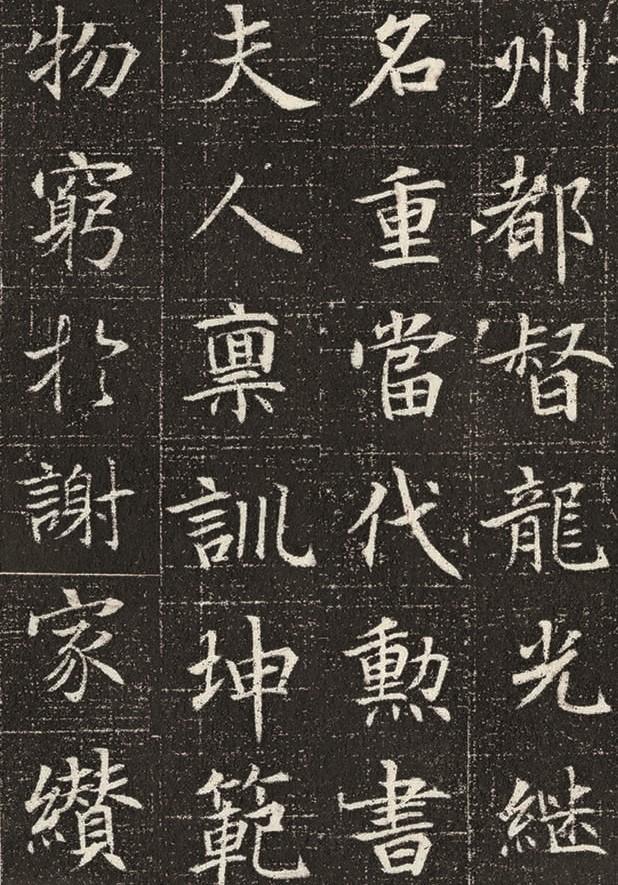 州都督龍光継
名重當代勳書
夫人禀訓坤範
物窮於謝家纘